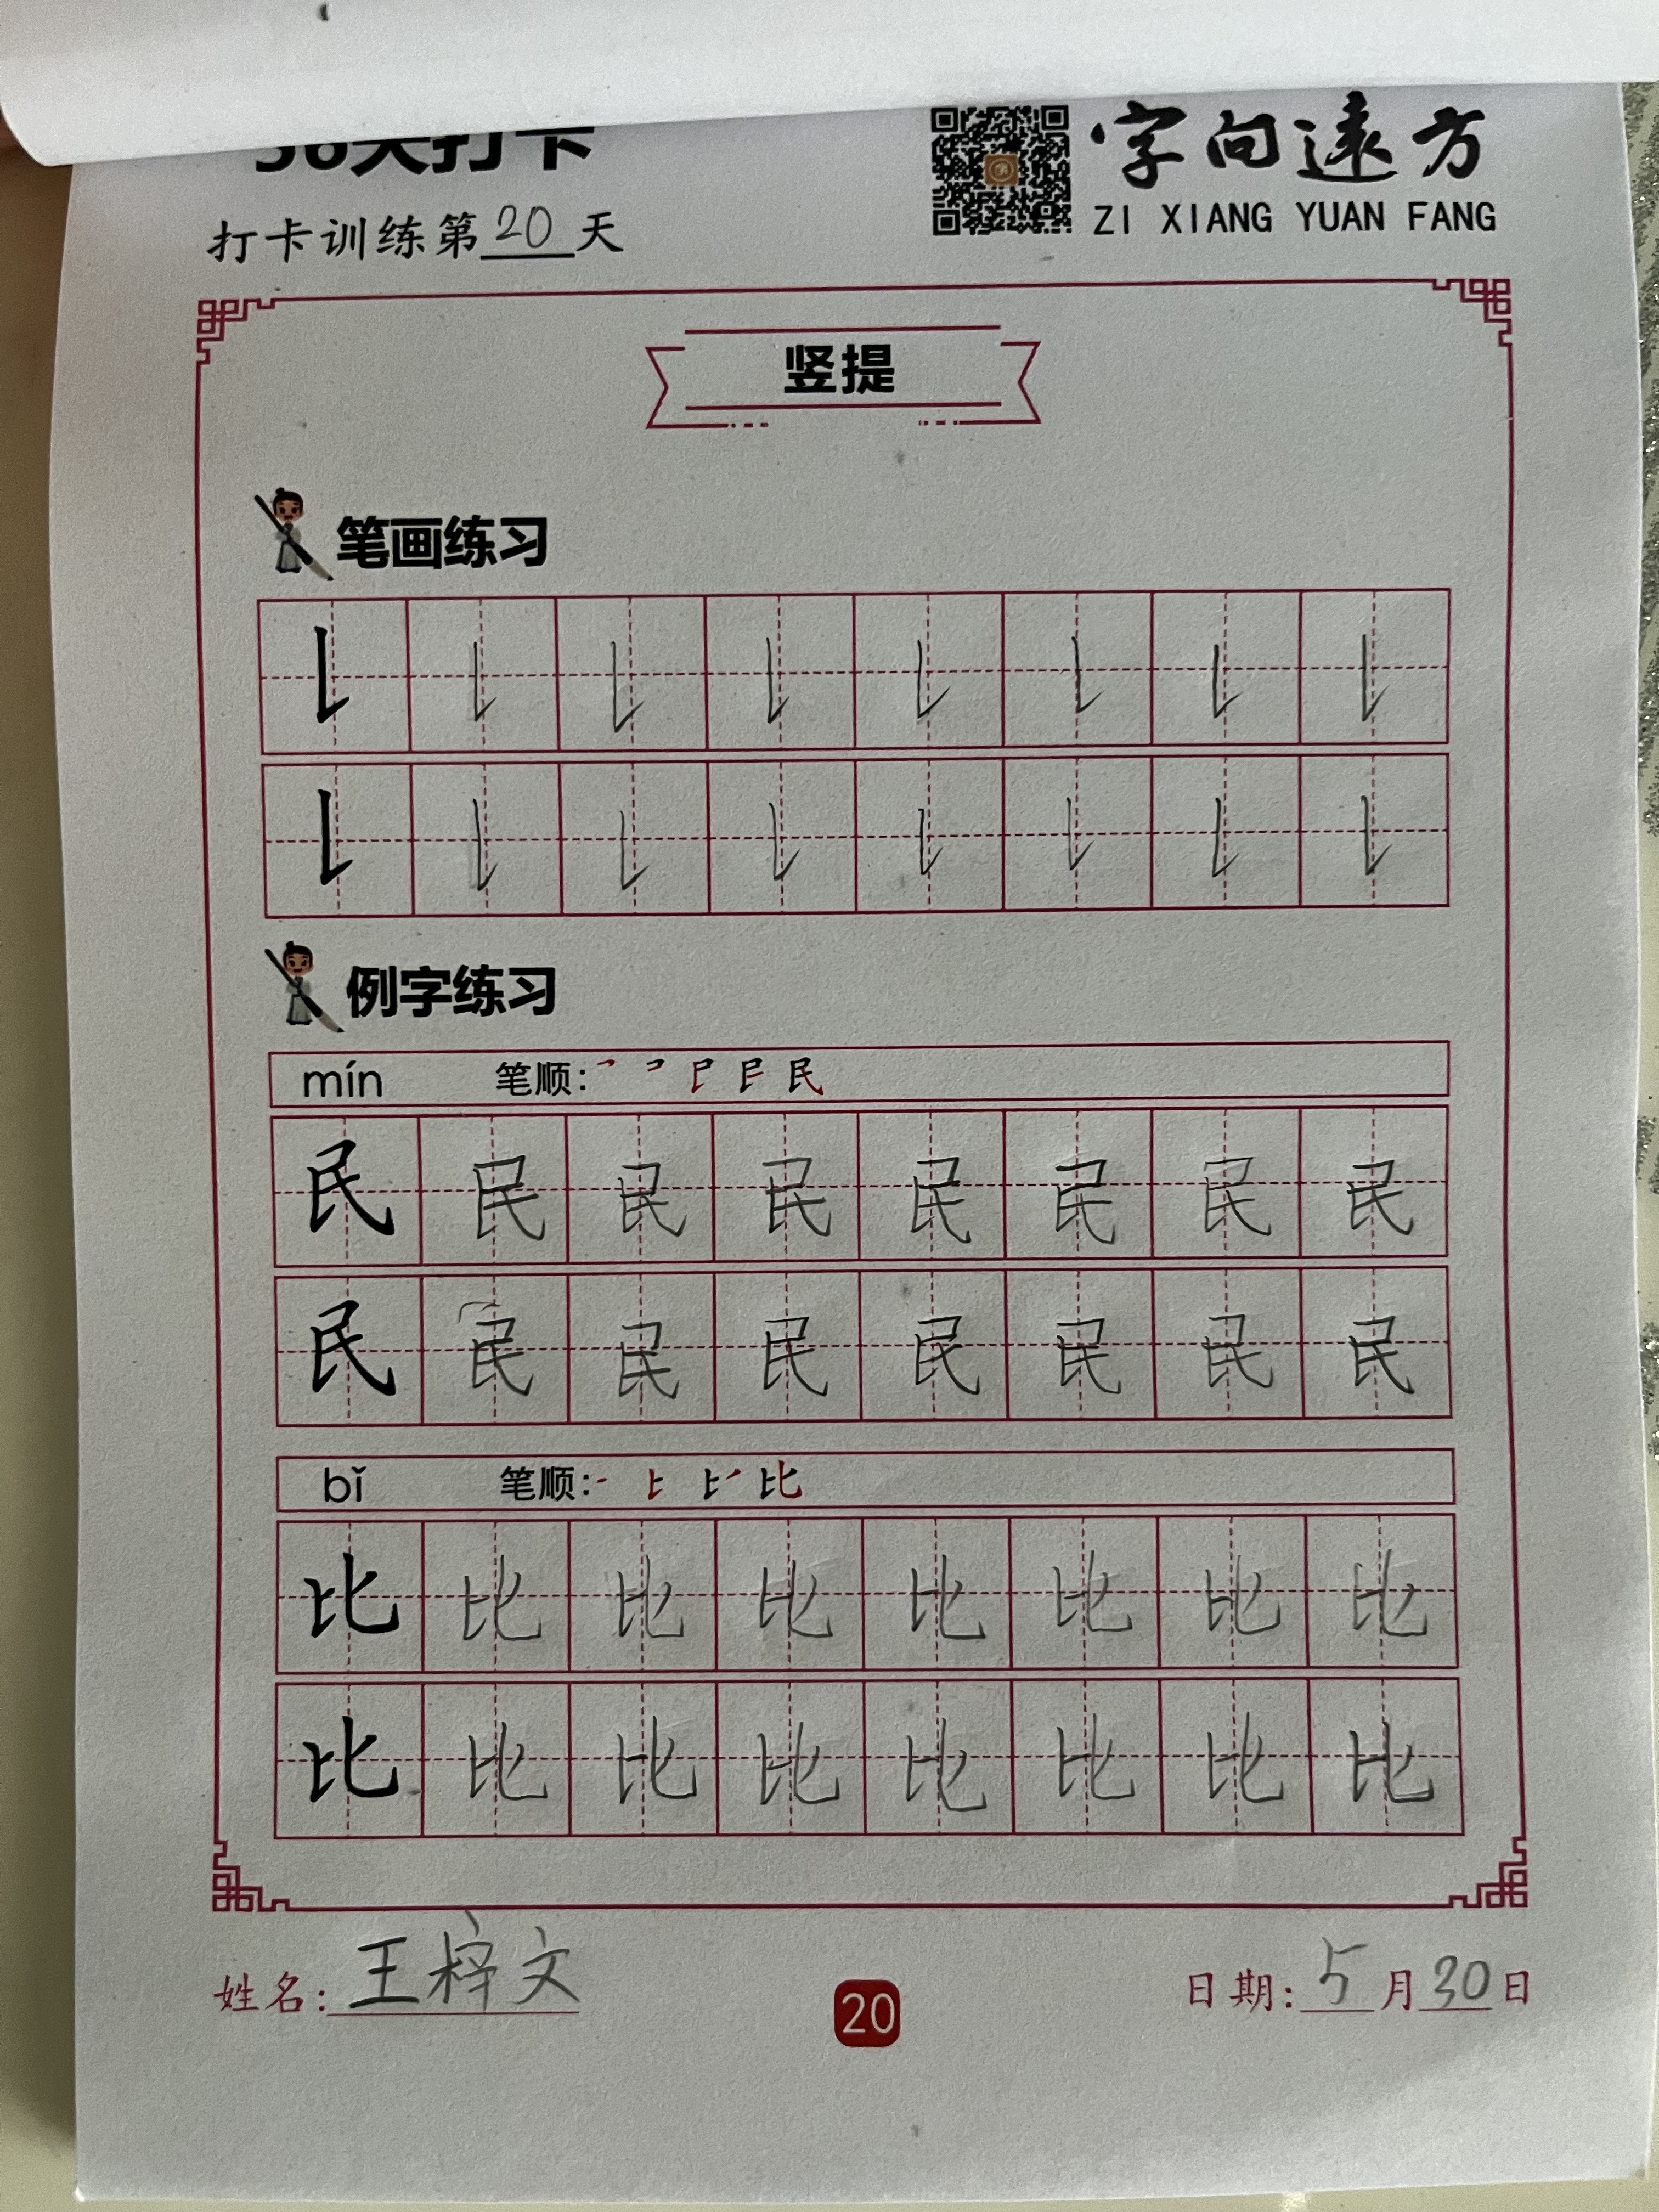 36天打卡
字向遠方
ZI XIANG YUAN FANG
打卡训练第20天
竖提
笔画练习
例字练习
mín 笔顺:
民 民 民 民 民 民 民 民
民 民 民 民 民 民 民 民
bǐ 笔顺:
比 比 比 比 比 比 比 比
比 比 比 比 比 比 比 比
姓名: 王梓文
20
日期: 5月30日